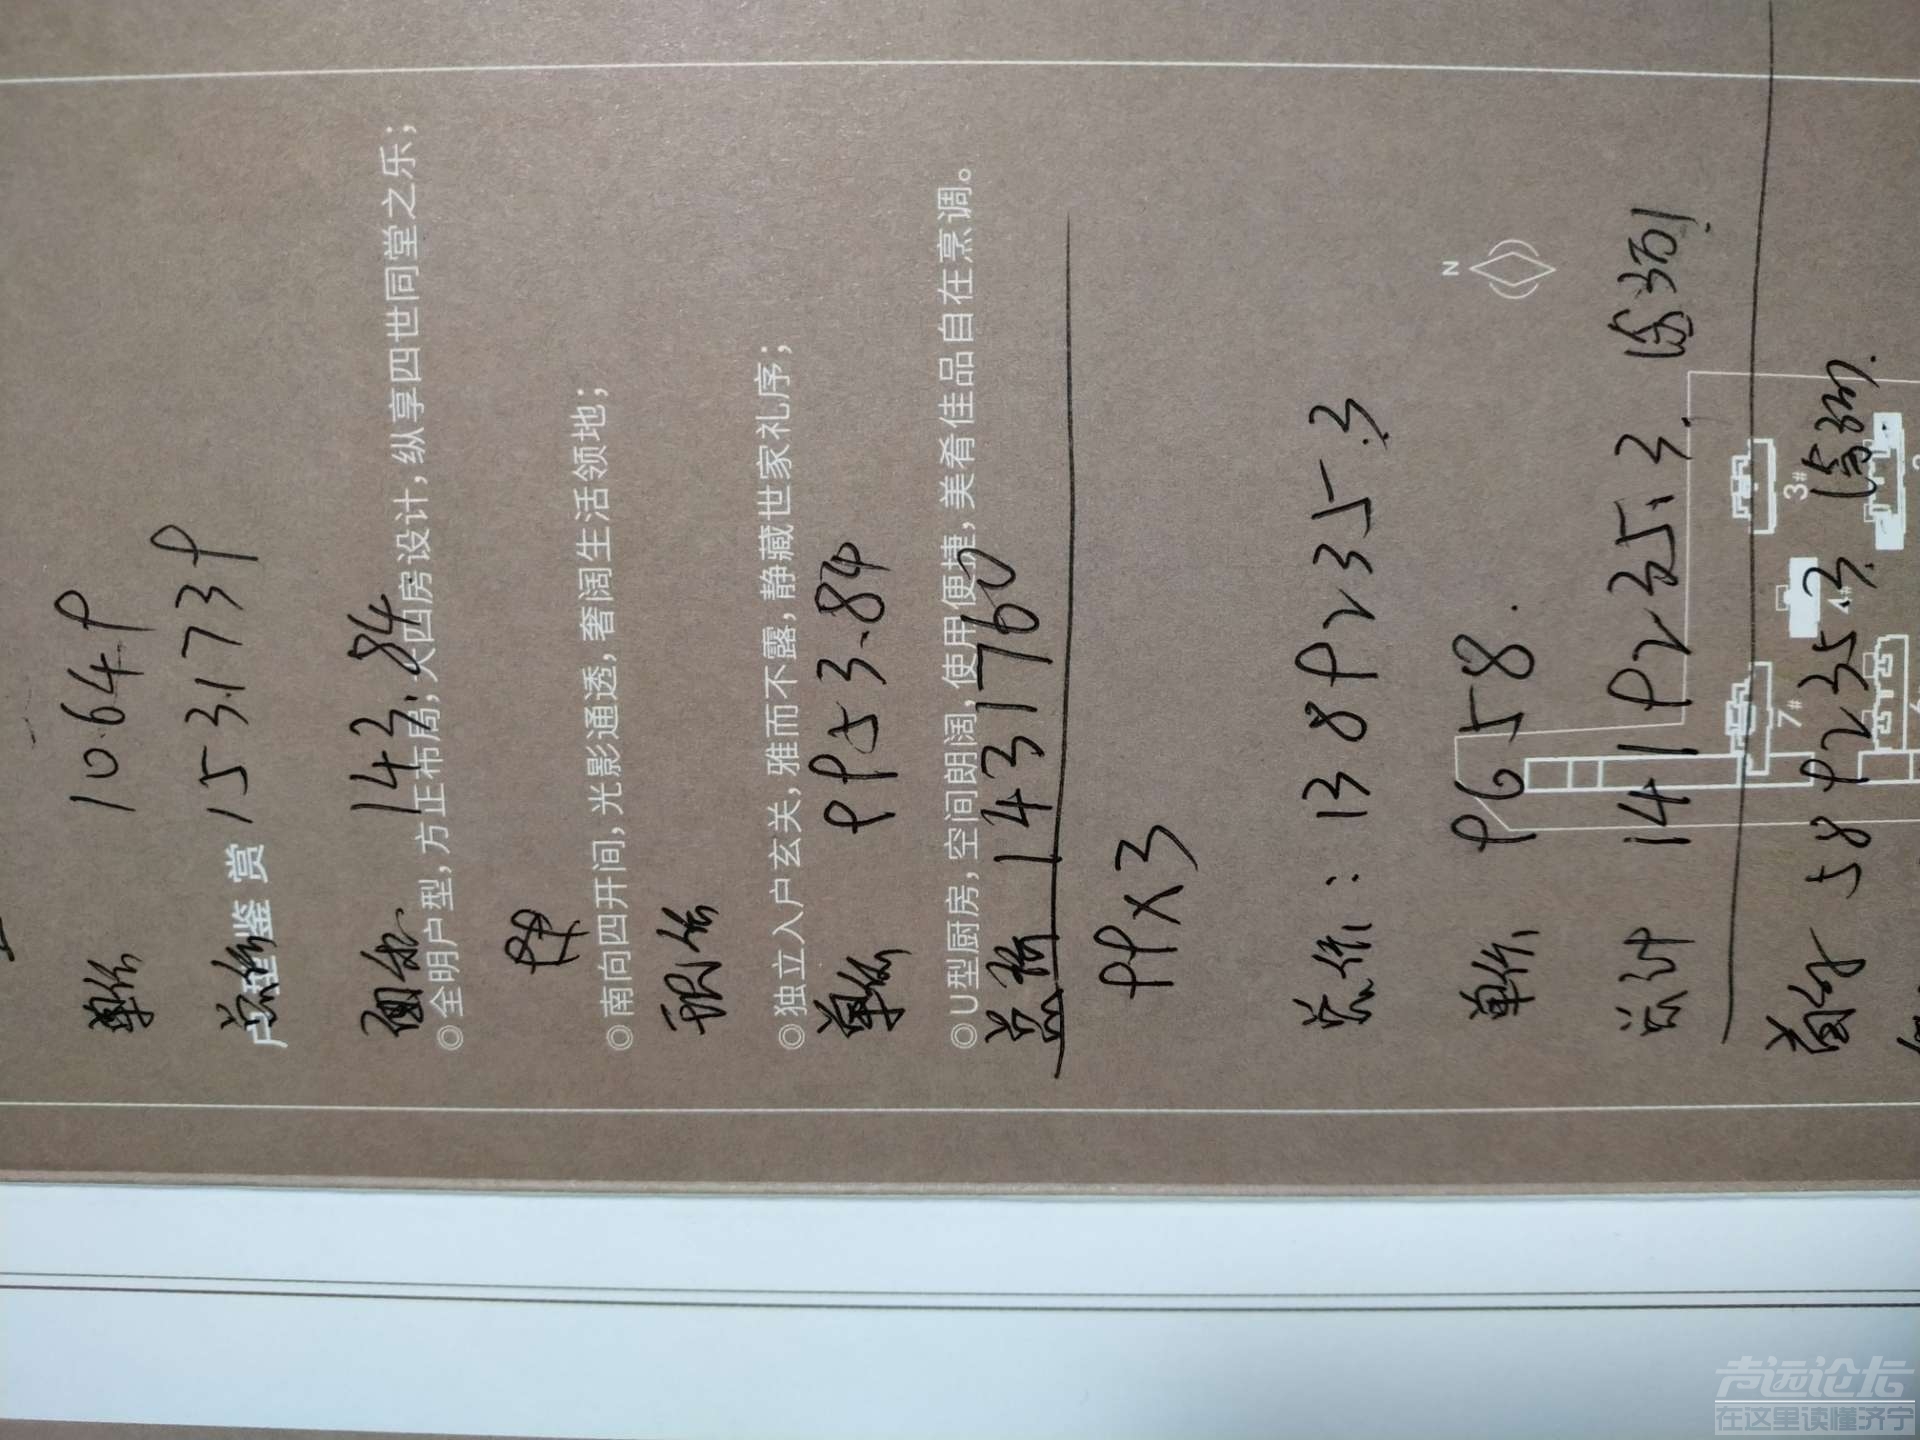 单价 10649
总价 1531739
户型鉴赏
面积 143.84
◎全明户型，方正布局，大四房设计，纵享四世同堂之乐；
◎南向四开间，光影通透，奢阔生活领地；
现价
◎独立入户玄关，雅而不露，静藏世家礼序；
单价 9953.84
◎U型厨房，空间朗阔，使用便捷，美肴佳品自在烹调。
总价 1431760
99×3
总价：1389235.3
N
单价 9658.
总计 1419235.3
3#
7#
首付 589235.3
声远论坛
在这里读懂济宁